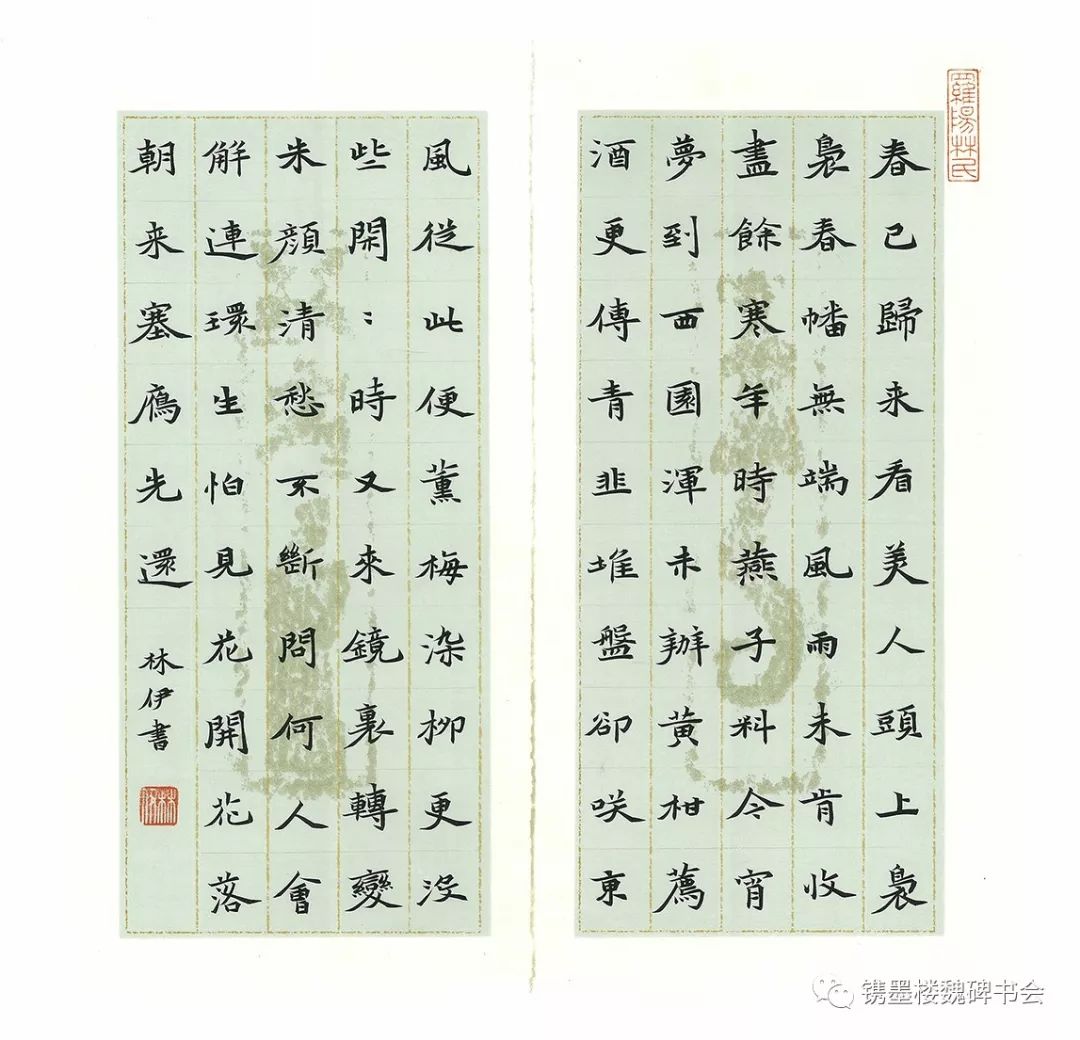 羅陽林氏
春已歸来看美人頭上裊
裊春幡無端風雨未肯收
盡餘寒年時燕子料今宵
夢到西園渾未辦黃柑薦
酒更傳青韭堆盤卻咲東
風從此便薰梅染柳更没
些閑：時又來鏡裏轉變
朱顔清愁不斷問何人會
解連環生怕見花開花落
朝来塞鴈先還
林伊書
镌墨楼魏碑书会